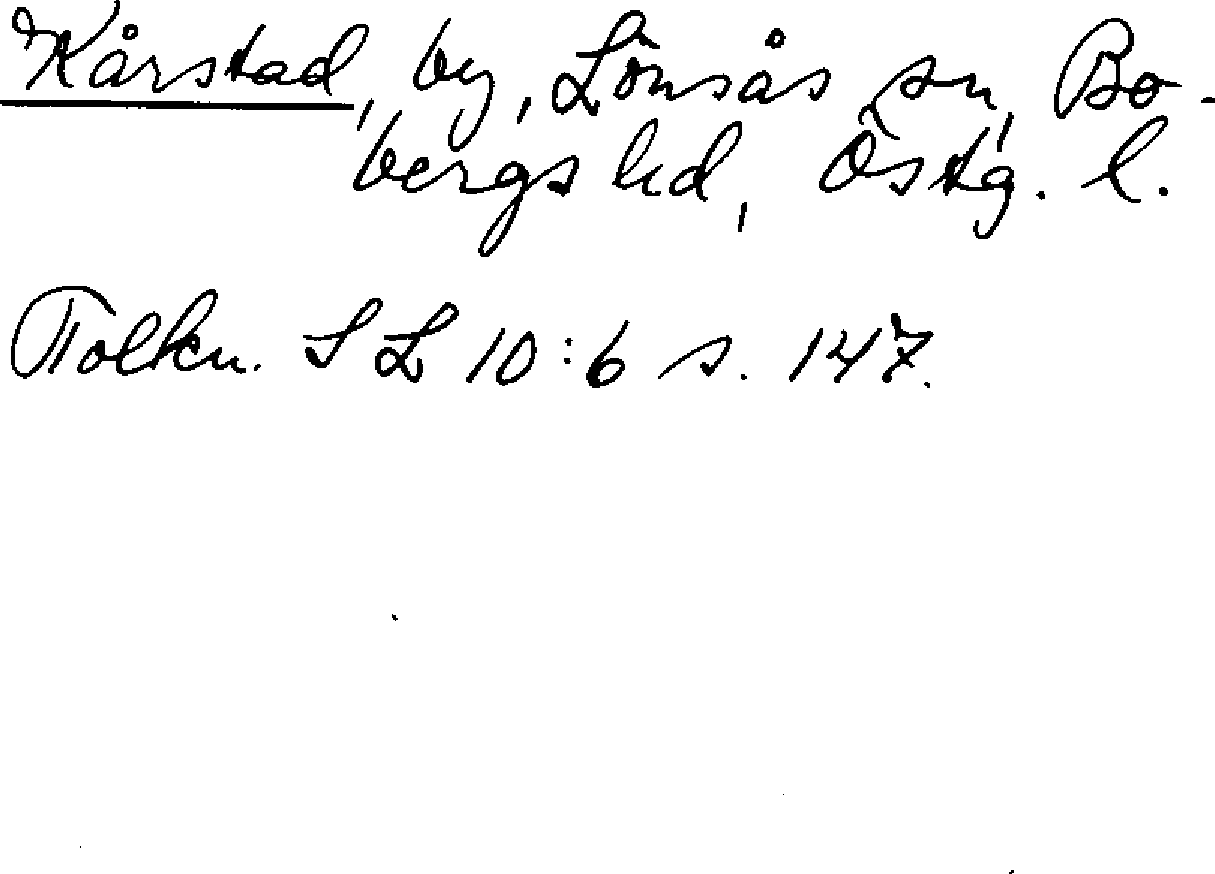 Kårstad, by, Lönsås sn, Bo-
bergs hd, Östg. l.
Tolkn. SL 10:6 s. 147.